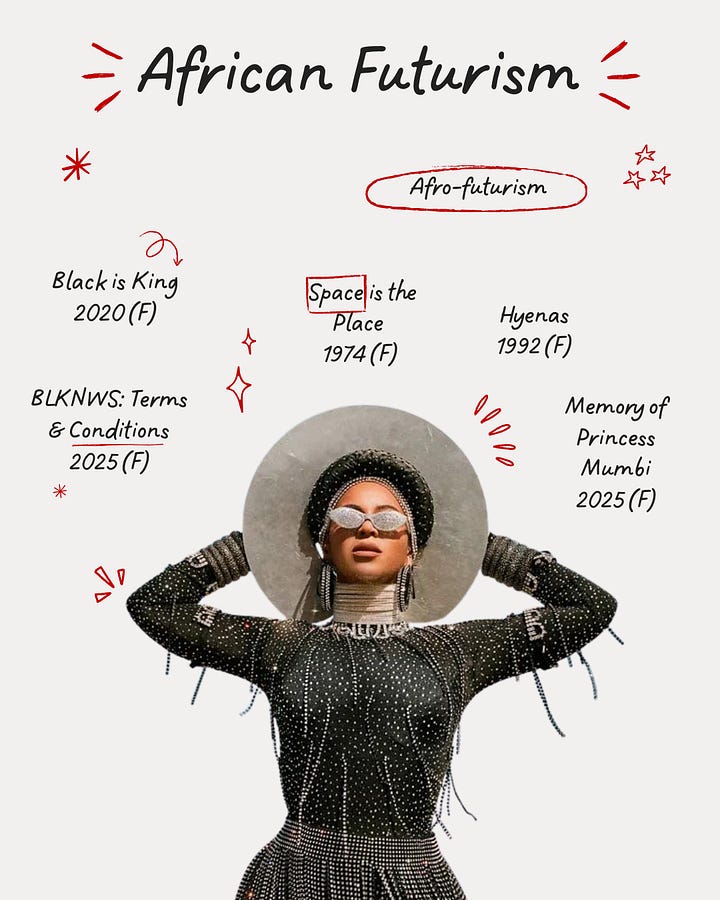 African Futurism
Afro-futurism
Black is King
2020 (F)
Space is the
Place
1974 (F)
Hyenas
1992 (F)
BLKNWS: Terms
& Conditions
2025 (F)
Memory of
Princess
Mumbi
2025 (F)